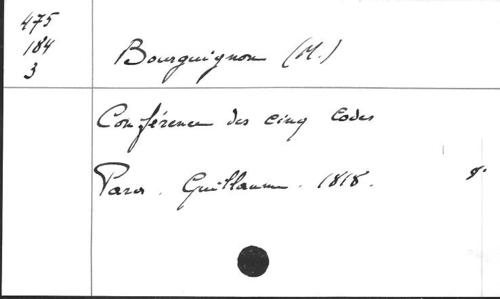 475
184
3
Bourguignon (M.)
Conférence des cinq Codes
Paris. Guillaume. 1818. 8°